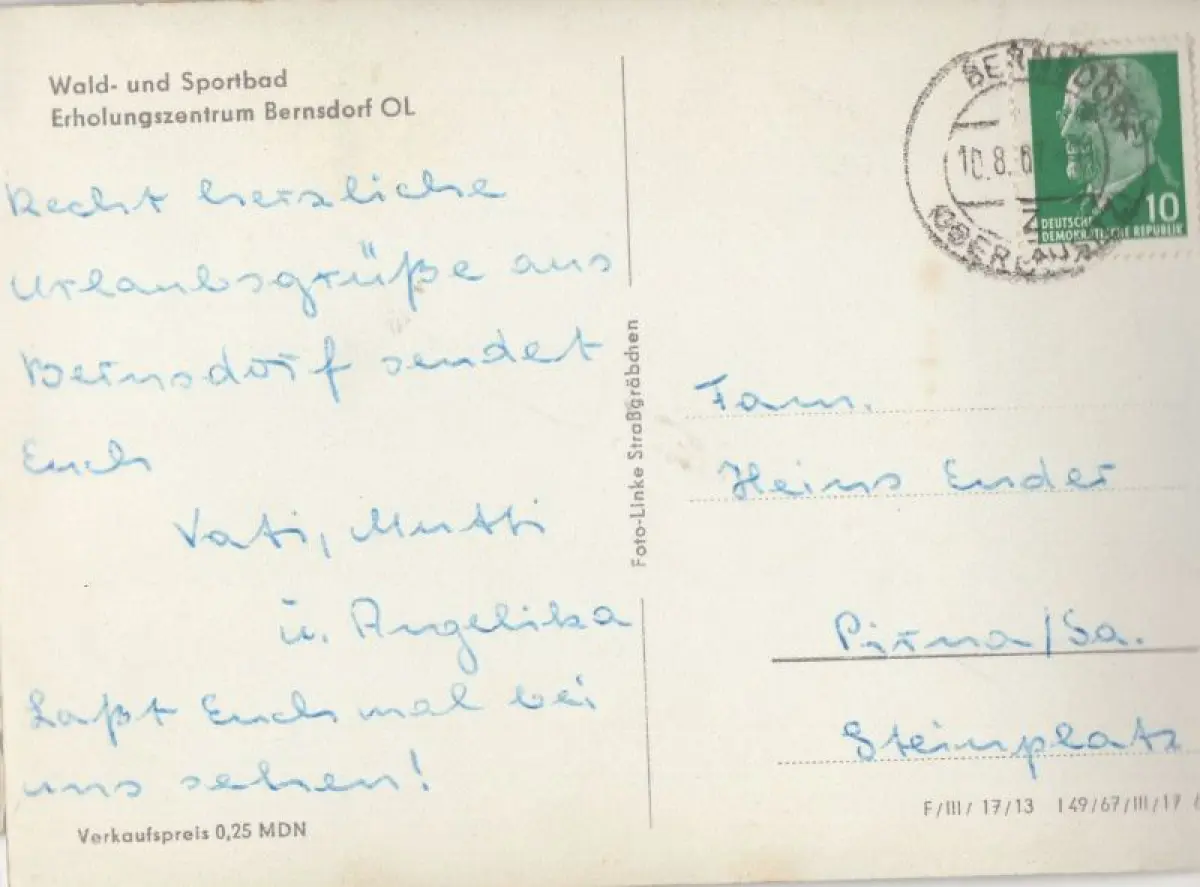 Wald- und Sportbad
Erholungszentrum Bernsdorf OL
Recht herzliche
Urlaubsgrüße aus
Bernsdorf sendet
Euch
Vati, Mutti
u. Angelika
Laßt Euch mal bei
uns sehen!
Verkaufspreis 0,25 MDN
Foto-Linke Straßgräbchen
BERNSDORF
10.8.6
OBERLAUSITZ
10
DEUTSCHE
DEMOKRATISCHE REPUBLIK
Fam.
Heinz Ender
Pirna/Sa.
Steinplatz
F/III/ 17/13 I 49/67/III/17